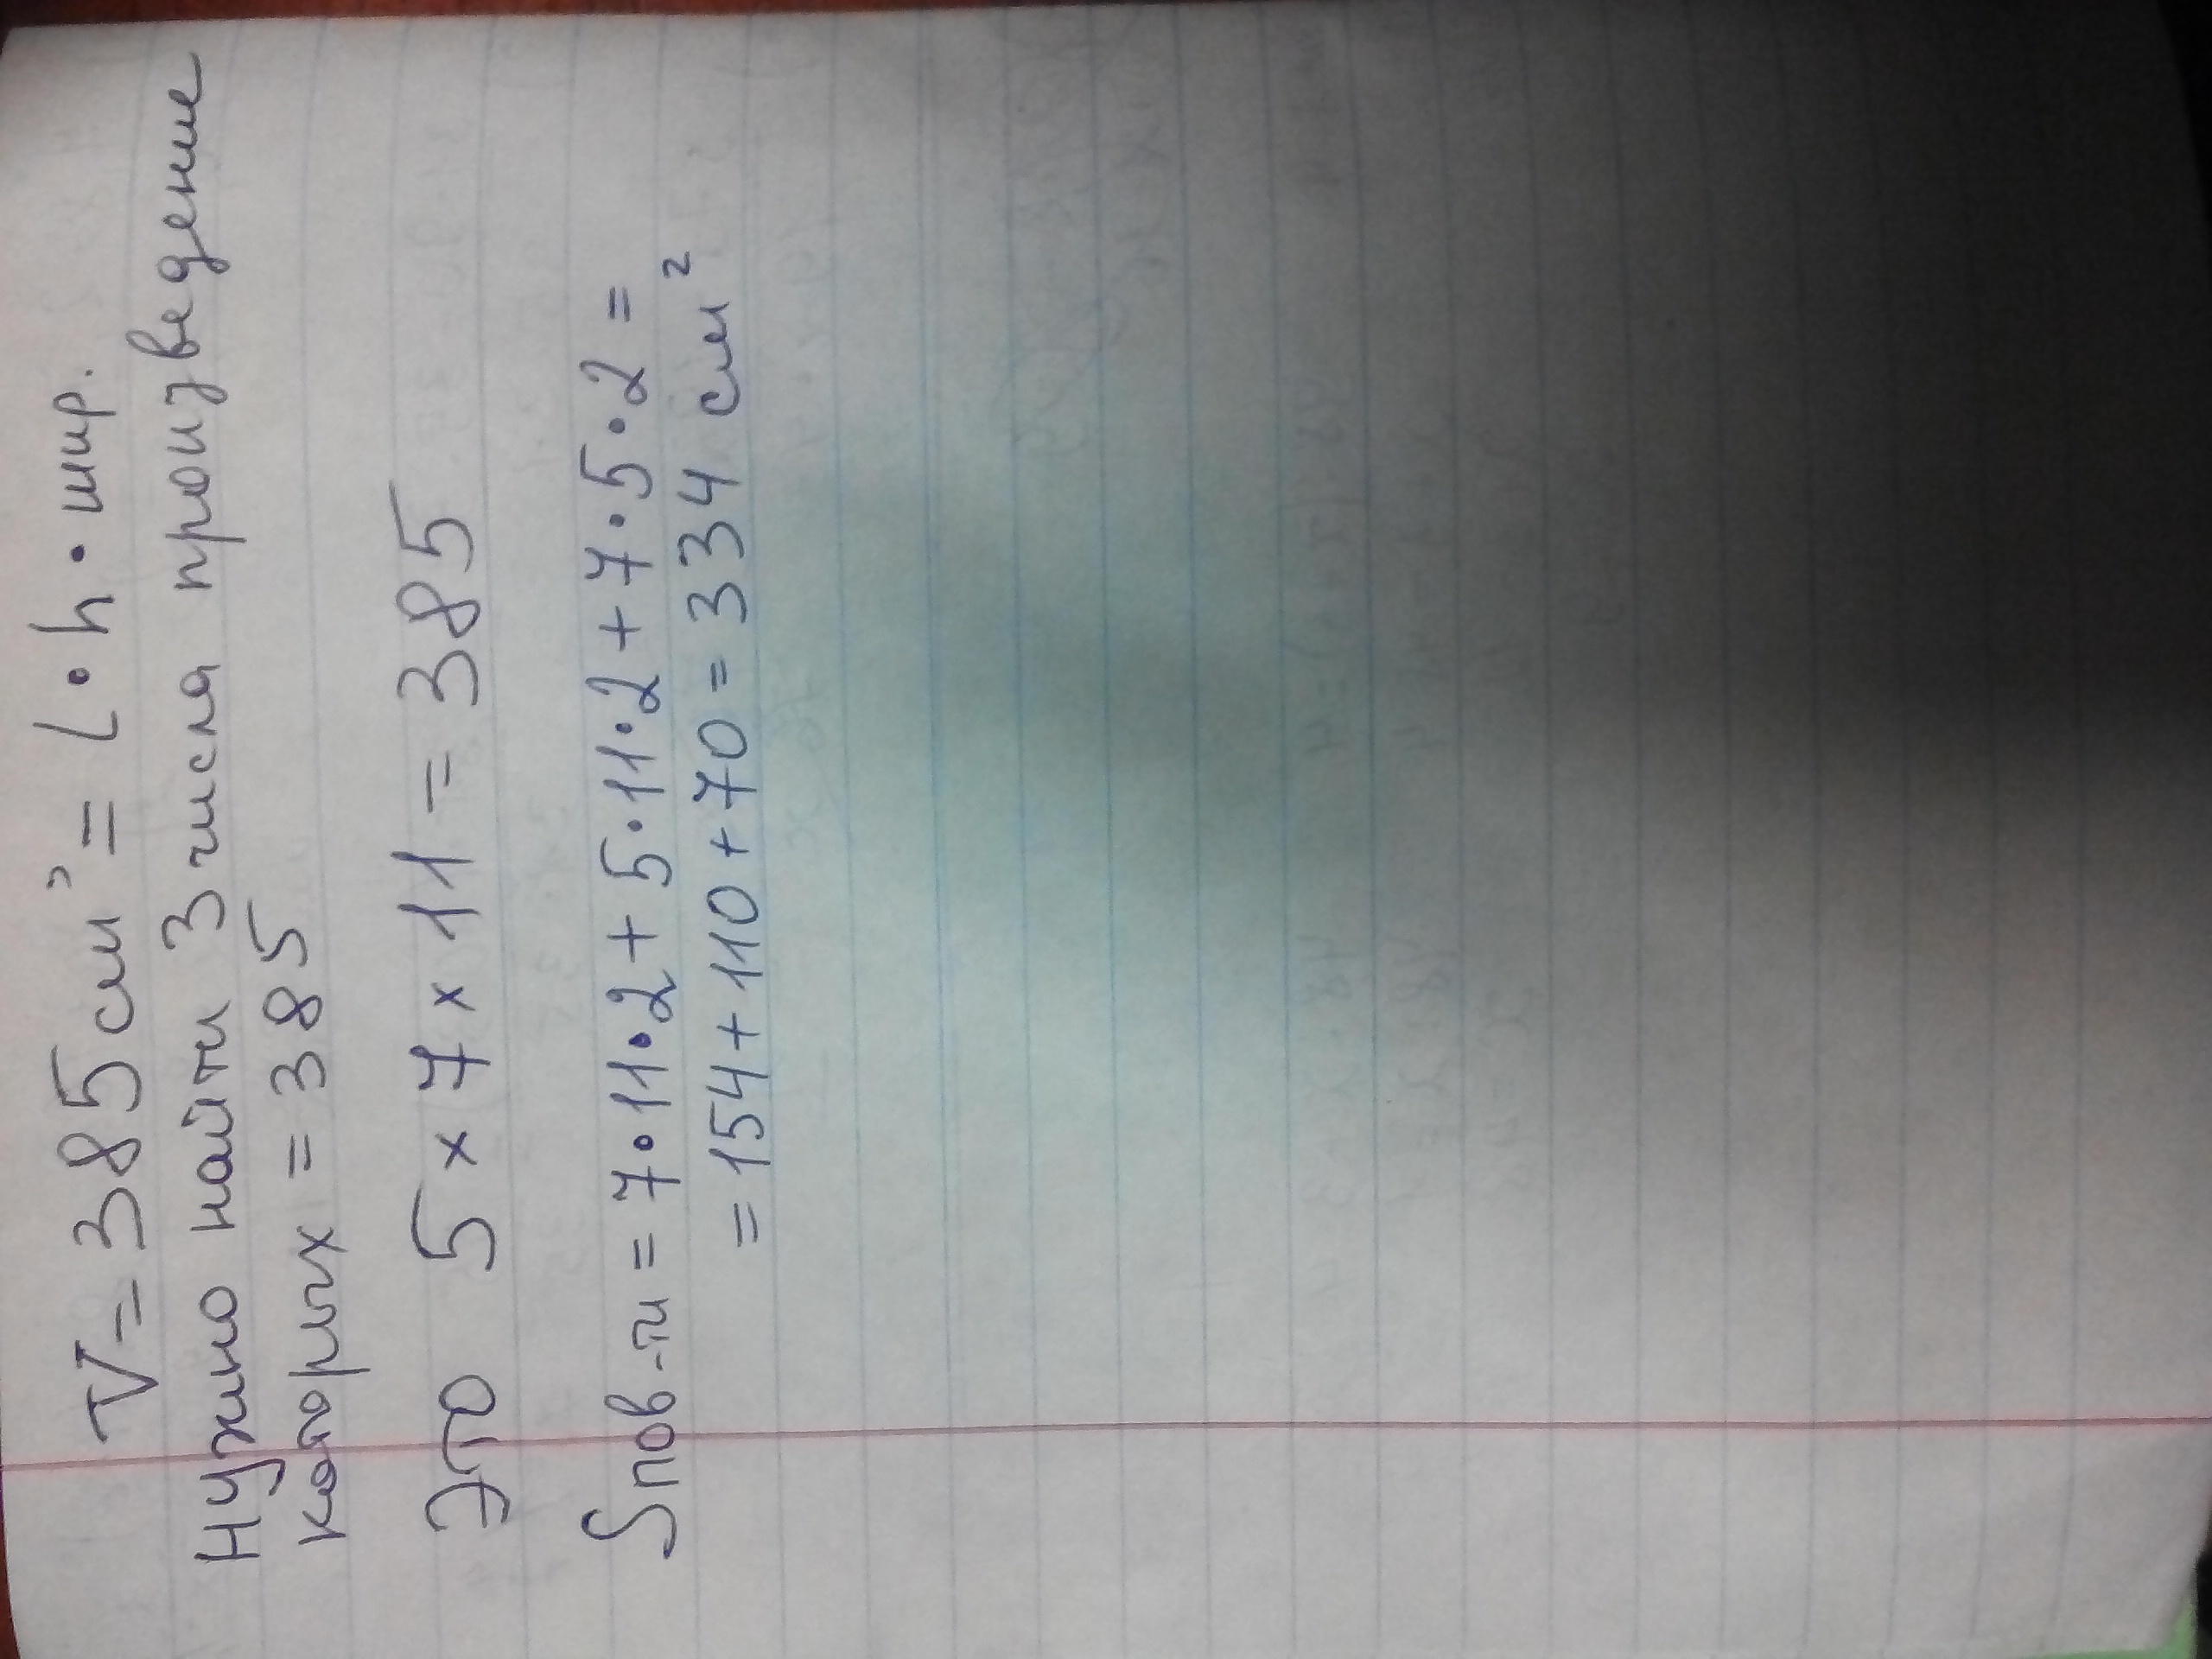 V = 385 см³ = L · h · шир.
Нужно найти 3 числа произведение
которых = 385
Это 5 × 7 × 11 = 385
Sпов-ти = 7 · 11 · 2 + 5 · 11 · 2 + 7 · 5 · 2 =
= 154 + 110 + 70 = 334 см²